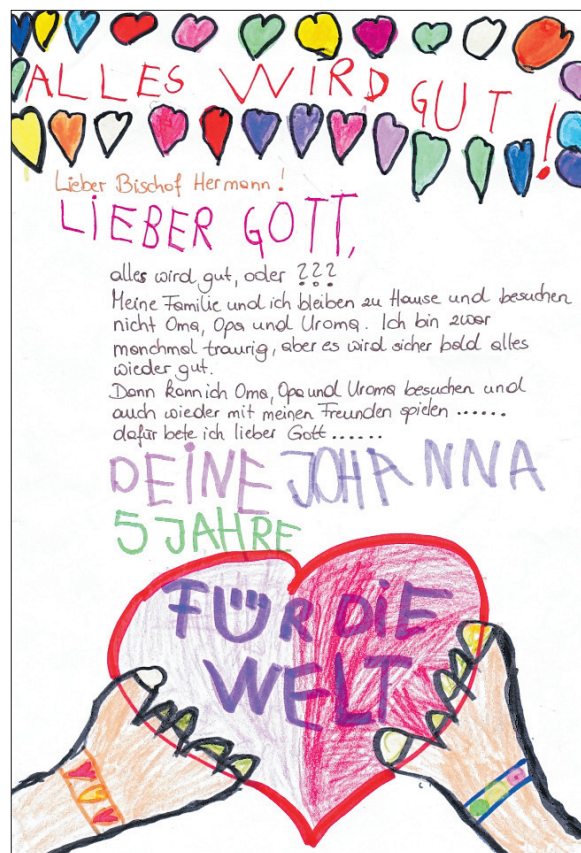 ALLES WIRD GUT!
Lieber Bischof Hermann!
LIEBER GOTT,
alles wird gut, oder ???
Meine Familie und ich bleiben zu Hause und besuchen
nicht Oma, Opa und Uroma. Ich bin zwar
manchmal traurig, aber es wird sicher bald alles
wieder gut.
Dann kann ich Oma, Opa und Uroma besuchen und
auch wieder mit meinen Freunden spielen ......
dafür bete ich lieber Gott ......
DEINE JOHANNA
5 JAHRE
FÜR DiE
WELT